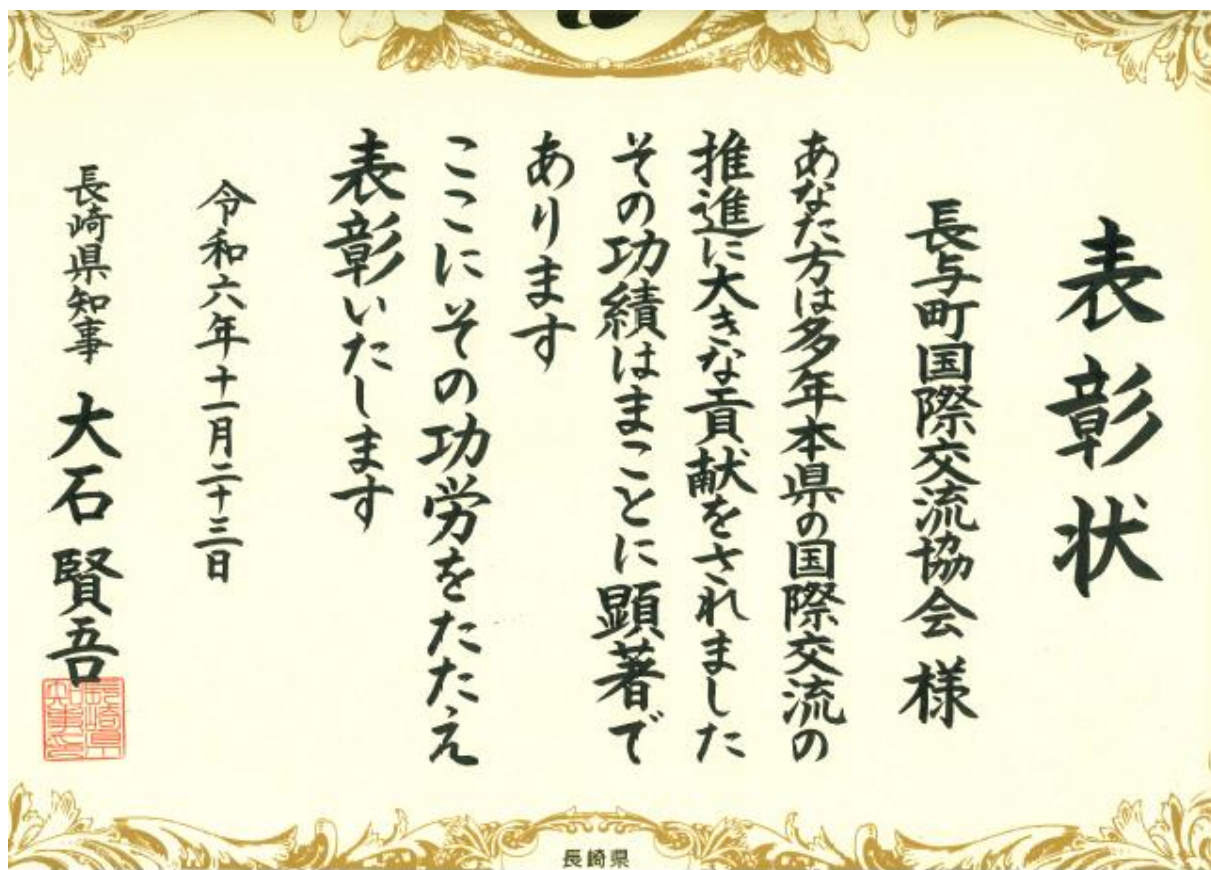 表彰状
長与町国際交流協会 様
あなた方は多年本県の国際交流の
推進に大きな貢献をされました
その功績はまことに顕著で
あります
ここにその功労をたたえ
表彰いたします
令和六年十一月二十三日
長崎県知事 大石賢吾
長崎県知事之印
長崎県